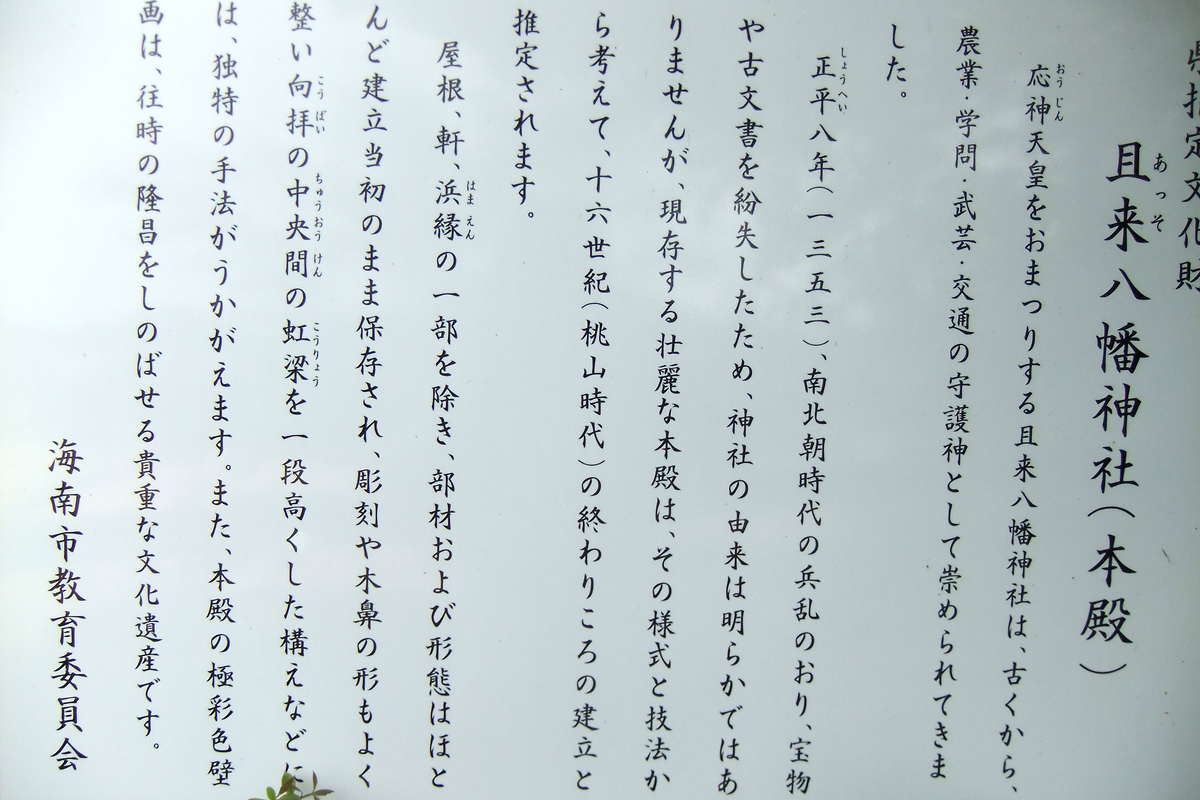 県指定文化財
且来八幡神社（本殿）
あっそ
応神天皇をおまつりする且来八幡神社は、古くから、
おうじん
農業・学問・武芸・交通の守護神として崇められてきま
した。
正平八年（一三五三）、南北朝時代の兵乱のおり、宝物
しょうへい
や古文書を紛失したため、神社の由来は明らかではあ
りませんが、現存する壮麗な本殿は、その様式と技法か
ら考えて、十六世紀（桃山時代）の終わりころの建立と
推定されます。
屋根、軒、浜縁の一部を除き、部材および形態はほと
はまえん
んど建立当初のまま保存され、彫刻や木鼻の形もよく
整い向拝の中央間の虹梁を一段高くした構えなどに
こうばい ちゅうおうけん こうりょう
は、独特の手法がうかがえます。また、本殿の極彩色壁
画は、往時の隆昌をしのばせる貴重な文化遺産です。
海南市教育委員会